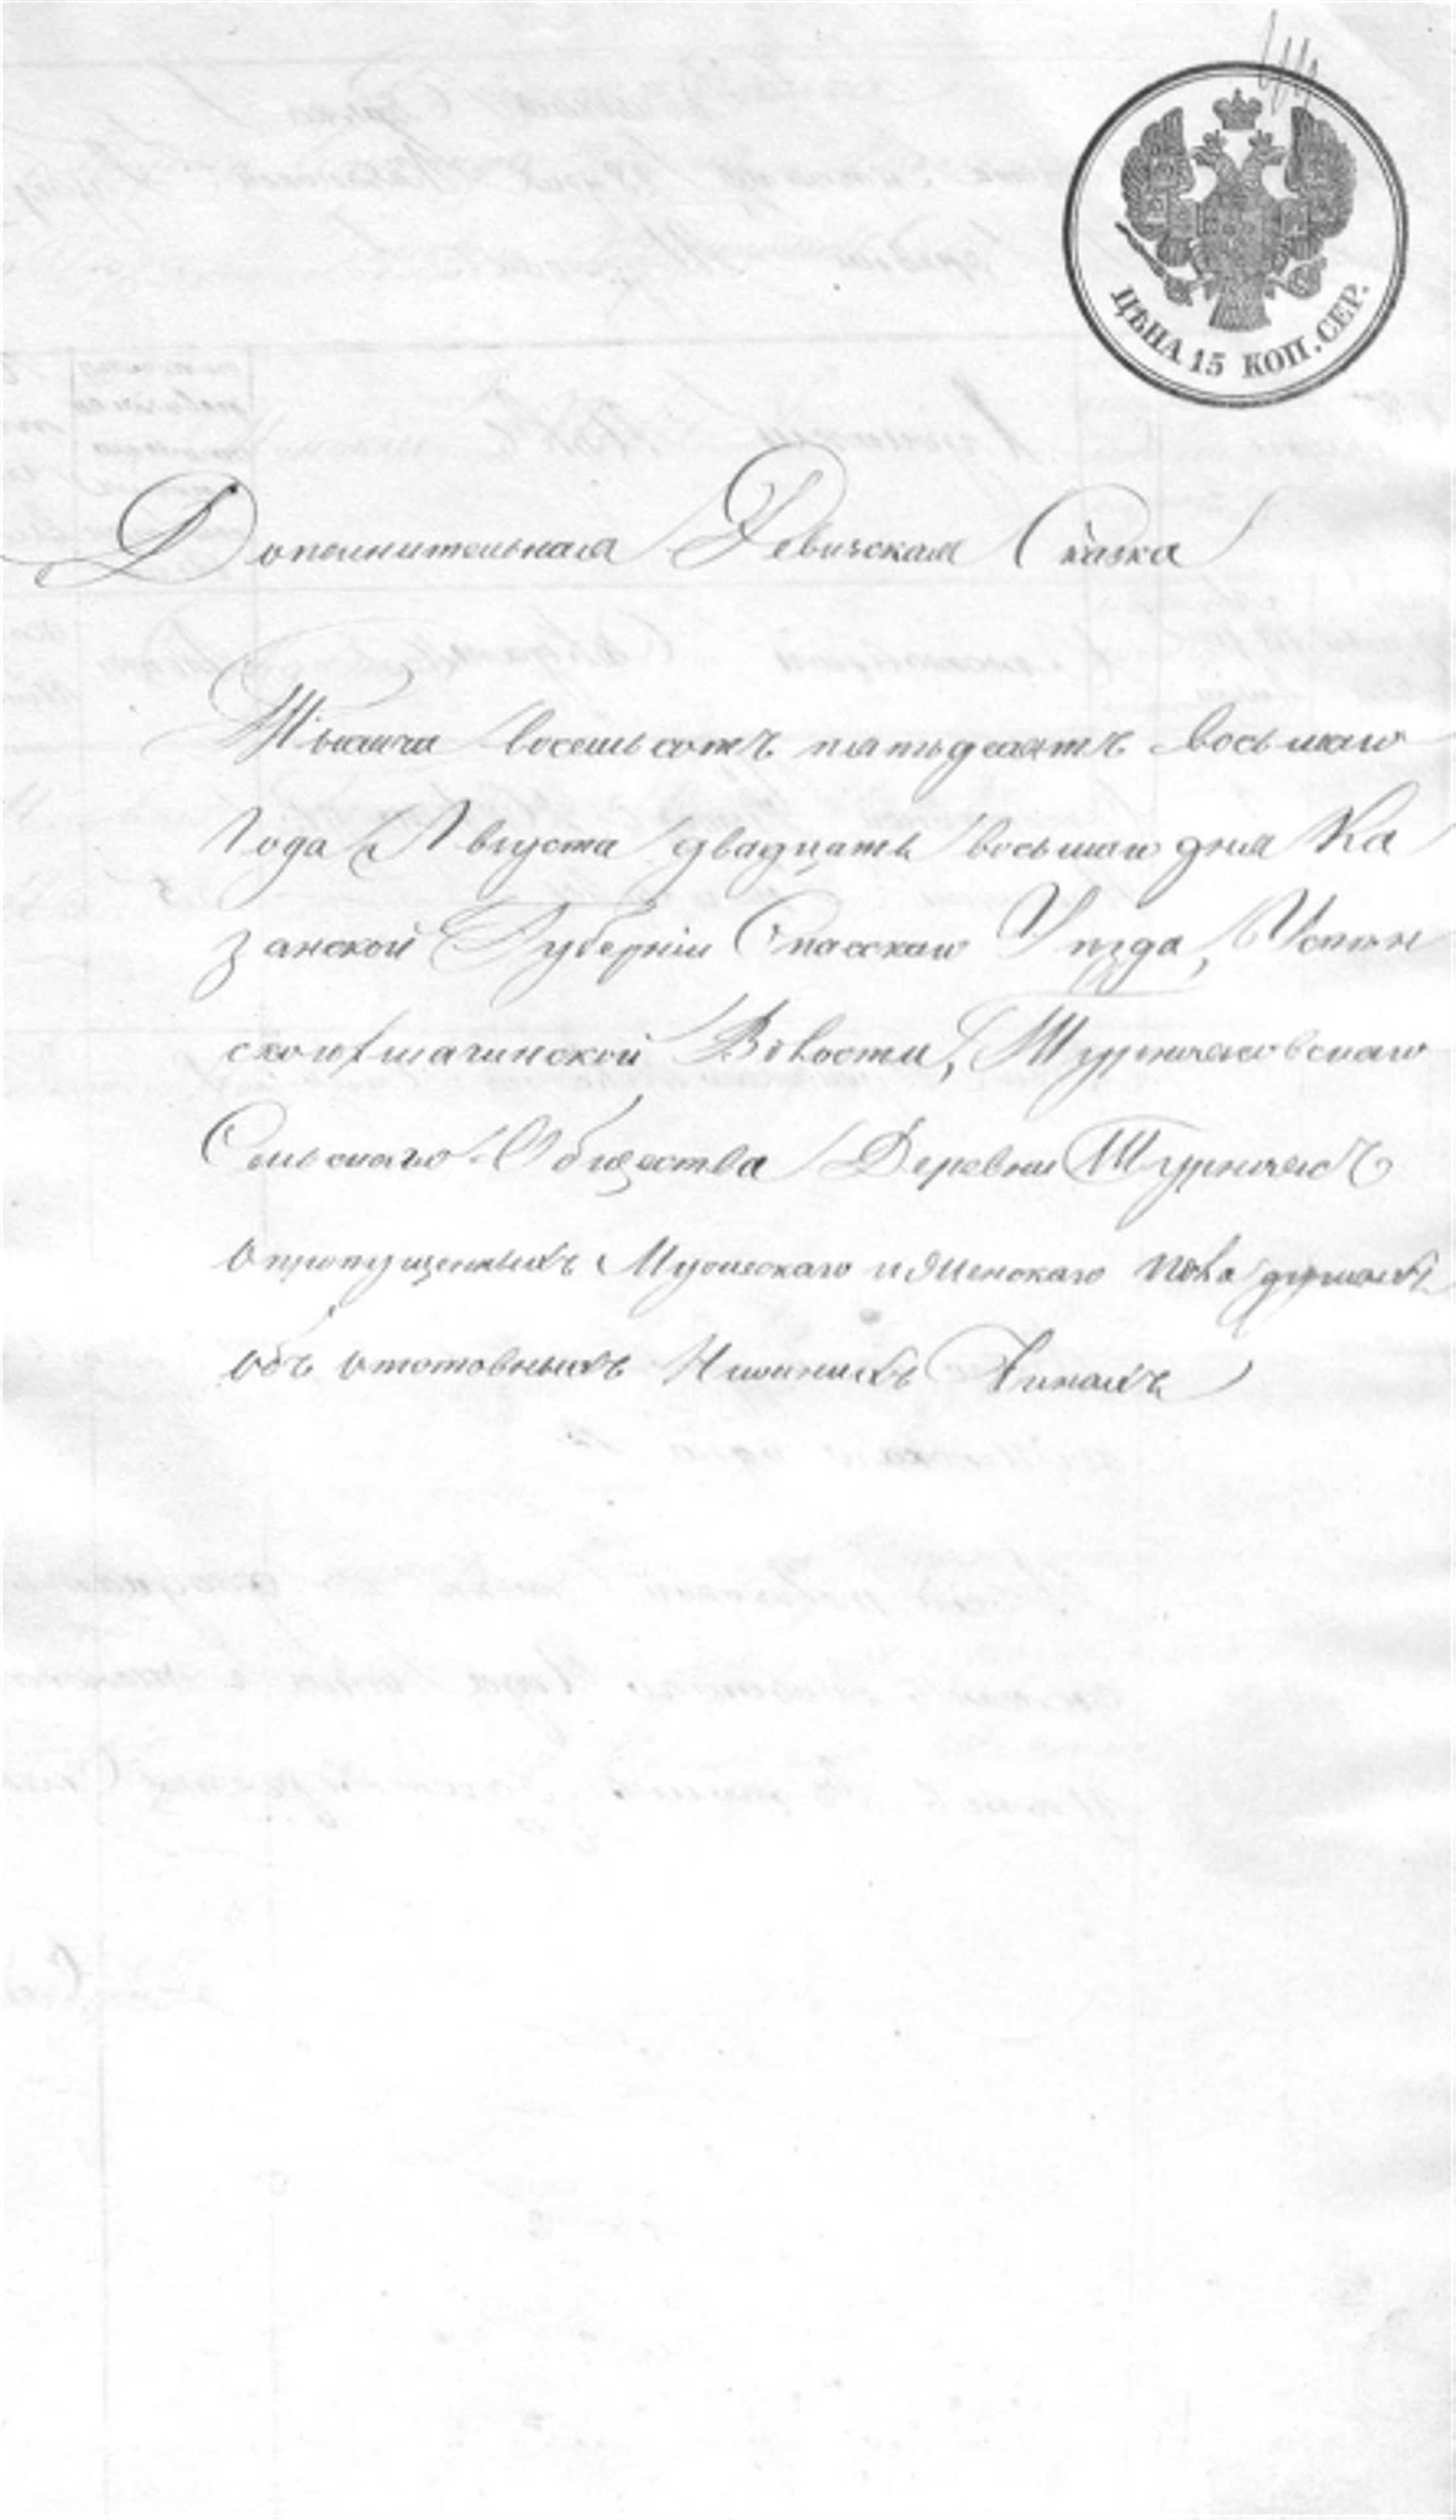 ЦѢНА 15 КОП. СЕР.
Дополнительная Ревизская Сказка
Тысяча восемьсотъ пятьдесятъ восьмаго
Года Августа двадцать восьмаго дня Ка
занской Губерніи Спасскаго Уѣзда,
Волости,
Сельскаго Общества Деревни
о пропущенныхъ Мужескаго и Женскаго пола душахъ
объ отставныхъ Нижнихъ Чинахъ